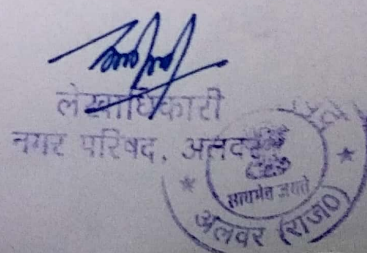 लेखाधिकारी
नगर परिषद, अलवर
सत्यमेव जयते
अलवर (राज0)